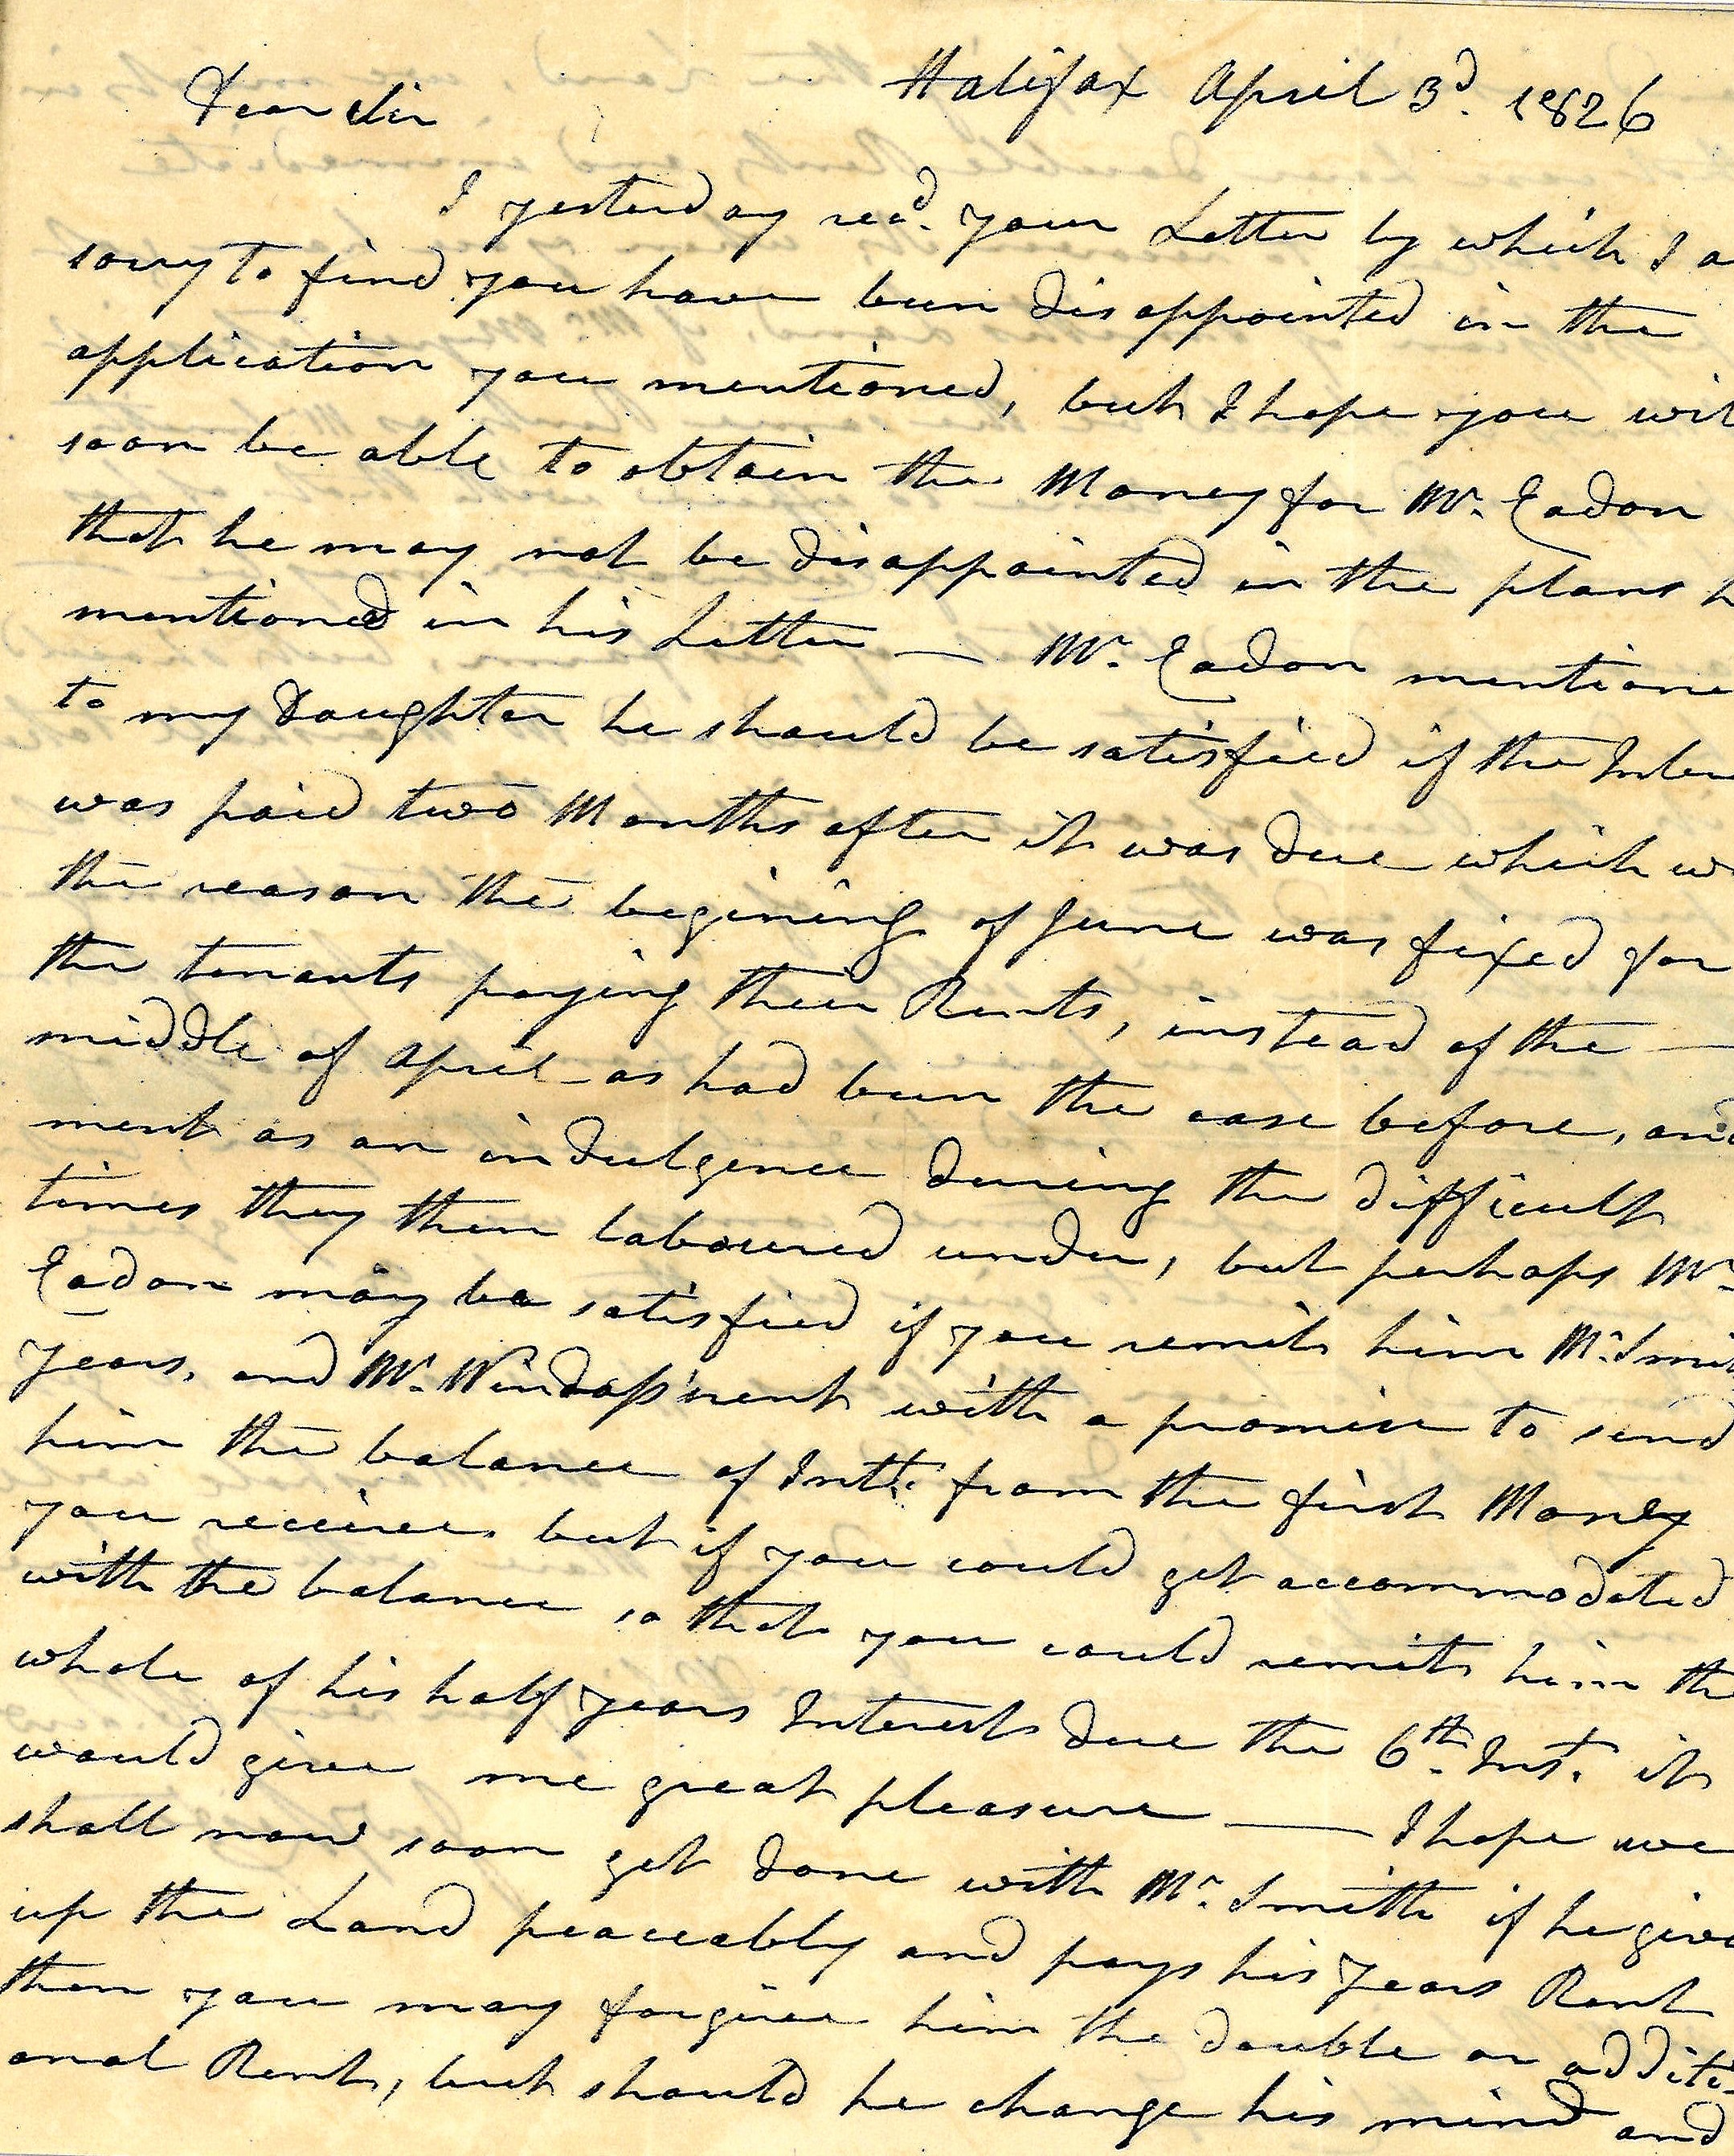 Halifax April 3d. 1826
Dear Sir
I yesterday recd. your Letter by which I a
sorry to find you have been disappointed in the
application you mentioned, but I hope you wil
soon be able to obtain the Money for Mr. Eadon
that he may not be disappointed in the plans h
mentioned in his Letter — Mr. Eadon mentione
to my Daughter he should be satisfied if the Inte
was paid two Months after it was due which w
the reason the begining of June was fixed for
the tenants paying their Rents, instead of the —
middle of April as had been the case before, and
ment as an indulgence during the difficult
times they then laboured under, but perhaps Mr.
Eadon may be satisfied if you remit him Mr. Smit
years, and Mr. Windass' rent with a promise to send
him the balance of Intt. from the first Money
you receives but if you could get accommodated
with the balance so that you could remit him the
whole of his half years Interest due the 6th. Inst. it
would give me great pleasure — I hope we
shall now soon get done with Mr. Smith if he give
up the Land peaceably and pays his years Rent
then you may forgive him the double or additi-
onal Rent, but should he change his mind and